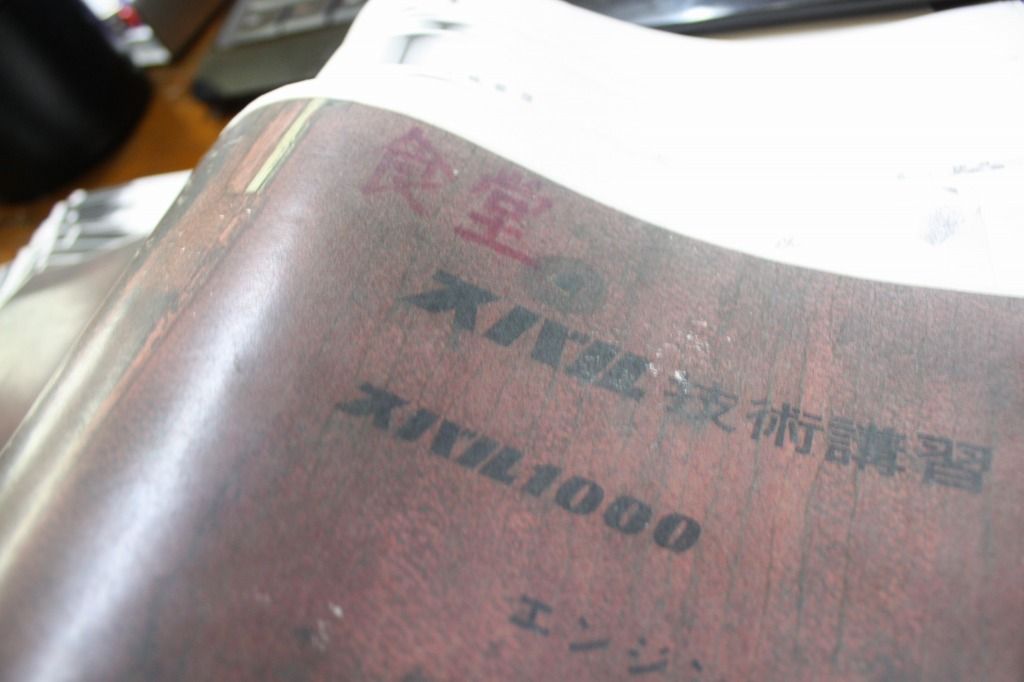 食堂
スバル技術講習
スバル1000
エンジ